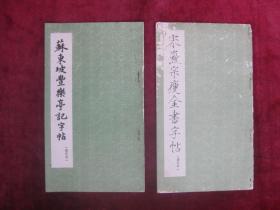 蘇東坡豐樂亭記字帖
宋徽宗瘦金書字帖